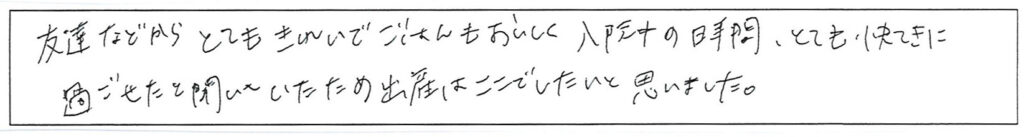 友達などから とても きれいで ごはんも おいしく 入院中の日時間、とても 快てきに
過ごせたと聞いていたため出産はここでしたいと思いました。